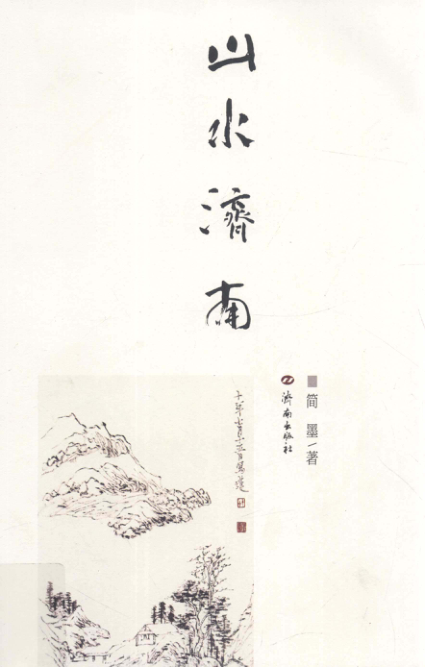 山水濟南
简 墨/著
濟南出版社